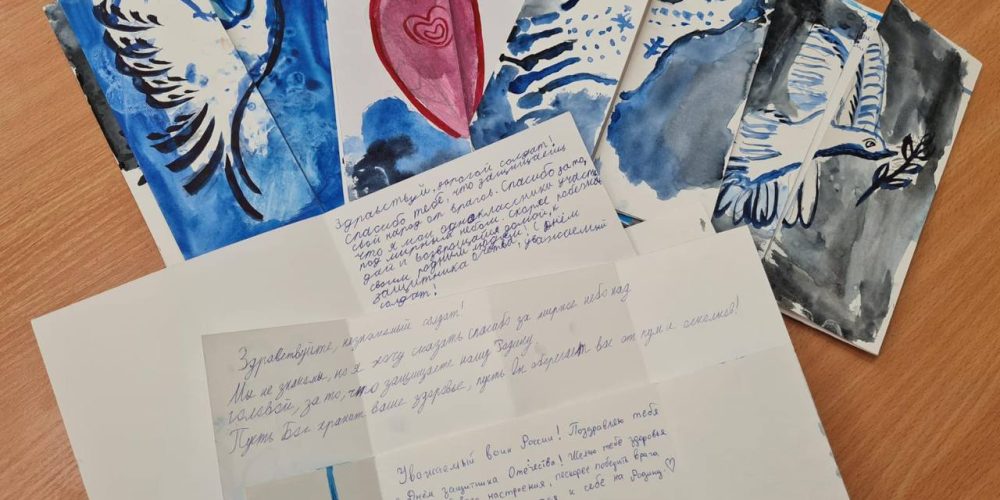 Здравствуй, дорогой солдат!
Спасибо тебе, что защищаешь
свой народ от врагов. Спасибо за то,
что я и мои одноклассники учатся
под мирным небом. Скорее побежай
дай и возвращайся домой, к
своим родным людям! С днём
защитника Отечества, уважаемый
солдат!
Здравствуйте, незнакомый солдат!
Мы не знакомы, но я хочу сказать спасибо за мирное небо над
головой, за то, что защищаете нашу Родину.
Пусть Бог хранит ваше здоровье, пусть Он оберегает вас от пуль и осколков!
Уважаемый воин России! Поздравляю тебя
с Днём защитника Отечества! Желаю тебе здоровья
настроения, поскорее победить врага
к себе на Родину ♡